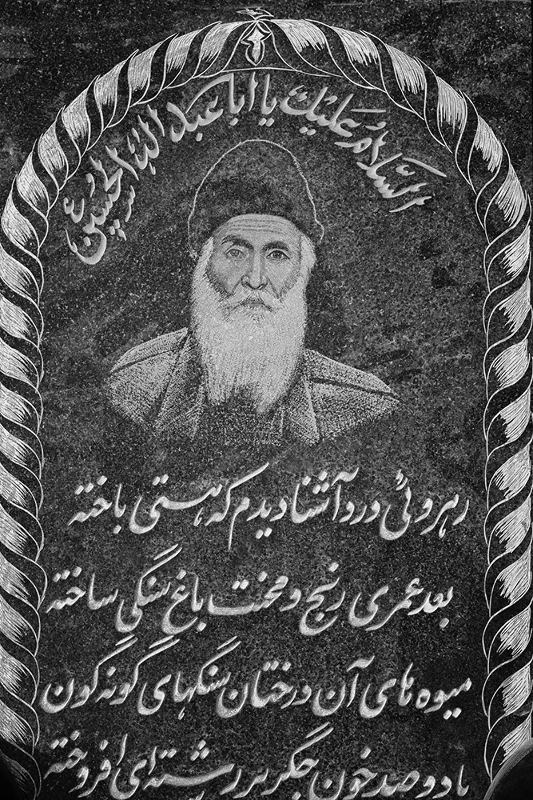 السَّلامُ عَلَيْكَ يا ابا عبد الله الحُسَين
رهروئی درد آشنا دیدم که هستی باخته
بعد عمری رنج و محنت باغ سنگی ساخته
میوه های آن درختان سنگهای گونه گون
با دو صد خون جگر بر رشته ای افروخته